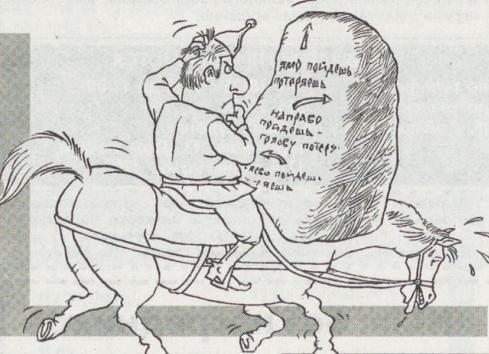 ЯМО ПОЙДЕШЬ
ПОТЕРЯЕШЬ
НАПРАВО
ПОЙДЕШЬ -
ГОЛОВУ ПОТЕРЯ.
ЛЕВО ПОЙДЕШЬ
РЯЕШЬ